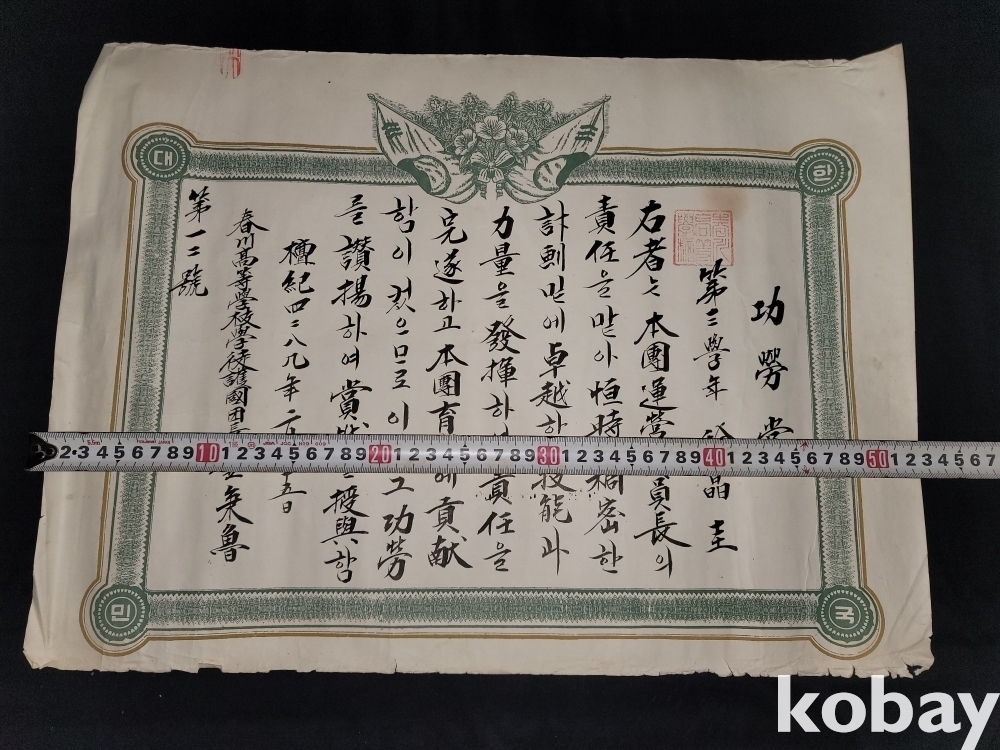 대
한
민
국
功勞
第三學年 晶圭
右者는 本團運營 員長의
責任을 맡아 恒時 稠密한
計劃밑에 卓越한 技能과
力量을 發揮하 責任을
完遂하고 本團育 에 貢獻
함이 컸으므로 이 그 功勞
를 讚揚하여 賞 授與함
檀紀四二八九年 二 五日
春川高等學校學徒護國団 英魯
第一二號
1 2 3 4 5 6 7 8 9 10 1 2 3 4 5 6 7 8 9 20 1 2 3 4 5 6 7 8 9 30 1 2 3 4 5 6 7 8 9 40 1 2 3 4 5 6 7 8 9 50 1 2 3 4 5 6 7
kobay